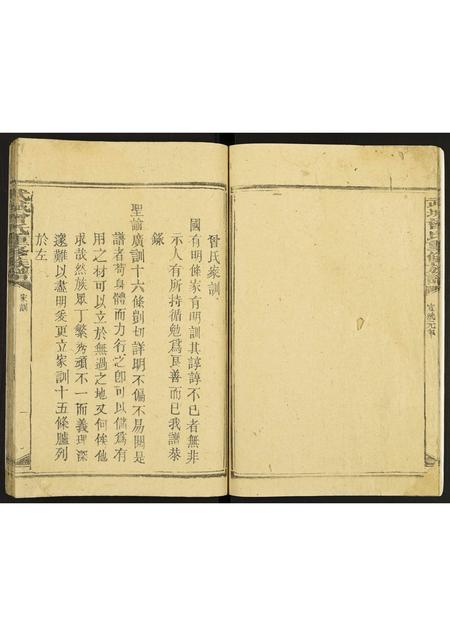 武城曾氏重修族譜
宣統元年
曾氏家訓
國有明條家有明訓其諄諄不已者無非
示人有所持循勉爲良善而已我譜恭
錄
聖諭廣訓十六條剴切詳明不偏不易閱是
譜者苟身體而力行之卽可以儲爲有
用之材可以立於無過之地又何俟他
求哉然族眾丁繁秀頑不一而義理深
邃難以盡明爰更立家訓十五條臚列
於左
武城曾氏重修族譜
家訓
一